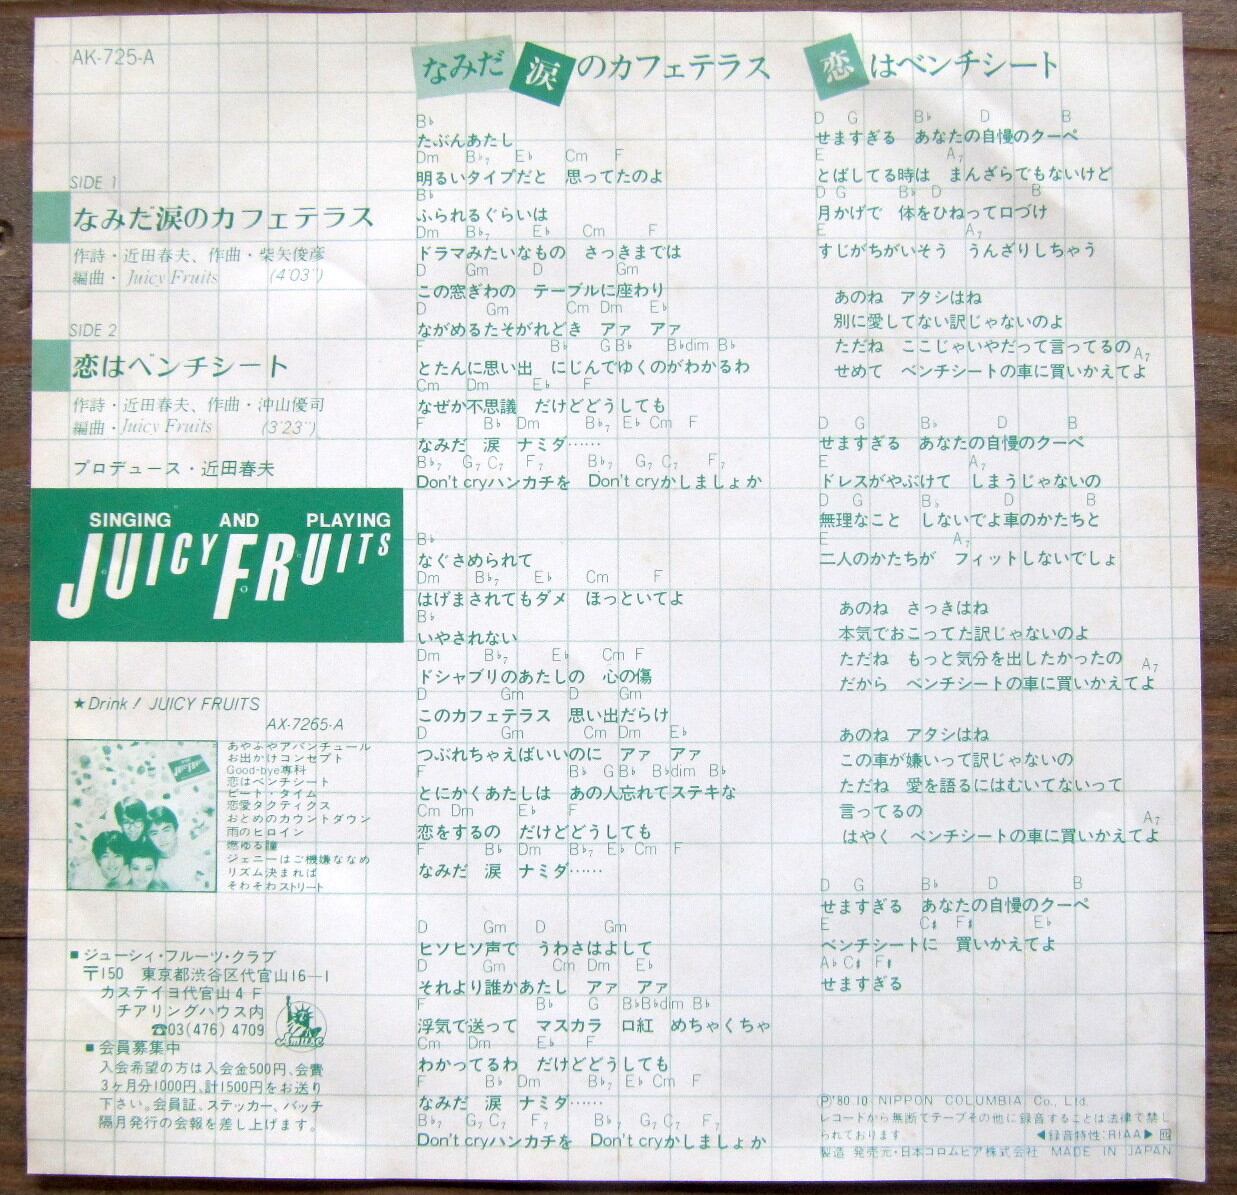 AK-725-A
SIDE 1
なみだ涙のカフェテラス
作詩・近田春夫、作曲・柴矢俊彦
編曲・Juicy Fruits (4'03")
SIDE 2
恋はベンチシート
作詩・近田春夫、作曲・沖山優司
編曲・Juicy Fruits (3'23")
プロデュース・近田春夫
SINGING AND PLAYING
JUICY FRUITS
★Drink! JUICY FRUITS
AX-7265-A
あやふやアバンチュール
お出かけコンセプト
Good-bye専科
恋はベンチシート
ビート・タイム
恋愛タクティクス
おとめのカウントダウン
雨のヒロイン
燃ゆる瞳
ジェニーはご機嫌ななめ
リズム決まれば
そわそわストリート
■ジューシィ・フルーツ・クラブ
〒150 東京都渋谷区代官山16—1
カスティヨ代官山4F
チアリングハウス内
☎03(476)4709
Amuse
■会員募集中
入会希望の方は入会金500円、会費
3ヶ月分1000円、計1500円をお送り
下さい。会員証、ステッカー、バッチ
隔月発行の会報を差し上げます。
なみだ 涙のカフェテラス
B♭
たぶんあたし
Dm B♭7 E♭ Cm F
明るいタイプだと 思ってたのよ
B♭
ふられるぐらいは
Dm B♭7 E♭ Cm F
ドラマみたいなもの さっきまでは
D Gm D Gm
この窓ぎわの テーブルに座わり
D Gm Cm Dm E♭
ながめるたそがれどき アァ アァ
F B♭ G B♭ B♭dim B♭
とたんに思い出 にじんでゆくのがわかるわ
Cm Dm E♭ F
なぜか不思議 だけどどうしても
F B♭ Dm B♭7 E♭ Cm F
なみだ 涙 ナミダ……
B♭7 G7 C7 F7 B♭7 G7 C7 F7
Don't cryハンカチを Don't cryかしましょか
B♭
なぐさめられて
Dm B♭7 E♭ Cm F
はげまされてもダメ ほっといてよ
B♭
いやされない
Dm B♭7 E♭ Cm F
ドシャブリのあたしの 心の傷
D Gm D Gm
このカフェテラス 思い出だらけ
D Gm Cm Dm E♭
つぶれちゃえばいいのに アァ アァ
F B♭ G B♭ B♭dim B♭
とにかくあたしは あの人忘れてステキな
Cm Dm E♭ F
恋をするの だけどどうしても
F B♭ Dm B♭7 E♭ Cm F
なみだ 涙 ナミダ……
D Gm D Gm
ヒソヒソ声で うわさはよして
D Gm Cm Dm E♭
それより誰かあたし アァ アァ
F B♭ G B♭B♭dim B♭
浮気で送って マスカラ 口紅 めちゃくちゃ
Cm Dm E♭ F
わかってるわ だけどどうしても
F B♭ Dm B♭7 E♭ Cm F
なみだ 涙 ナミダ……
B♭7 G7 C7 F7 B♭7 G7 C7 F7
Don't cryハンカチを Don't cryかしましょか
恋はベンチシート
D G B♭ D B
せますぎる あなたの自慢のクーペ
E A7
とばしてる時は まんざらでもないけど
D G B♭ D B
月かげで 体をひねって口づけ
E A7
すじがちがいそう うんざりしちゃう
あのね アタシはね
別に愛してない訳じゃないのよ
ただね ここじゃいやだって言ってるの
A7
せめて ベンチシートの車に買いかえてよ
D G B♭ D B
せますぎる あなたの自慢のクーペ
E A7
ドレスがやぶけて しまうじゃないの
D G B♭ D B
無理なこと しないでよ車のかたちと
E A7
二人のかたちが フィットしないでしょ
あのね さっきはね
本気でおこってた訳じゃないのよ
ただね もっと気分を出したかったの
A7
だから ベンチシートの車に買いかえてよ
あのね アタシはね
この車が嫌いって訳じゃないの
ただね 愛を語るにはむいてないって
言ってるの
A7
はやく ベンチシートの車に買いかえてよ
D G B♭ D B
せますぎる あなたの自慢のクーペ
E C♯ F♯ E♭
ベンチシートに 買いかえてよ
A♭ C♯ F♯
せますぎる
Ⓟ'80.10 NIPPON COLUMBIA Co., Ltd.
レコードから無断でテープその他に録音することは法律で禁じ
られております ◀録音特性:RIAA▶
製造 発売元・日本コロムビア株式会社 MADE IN JAPAN